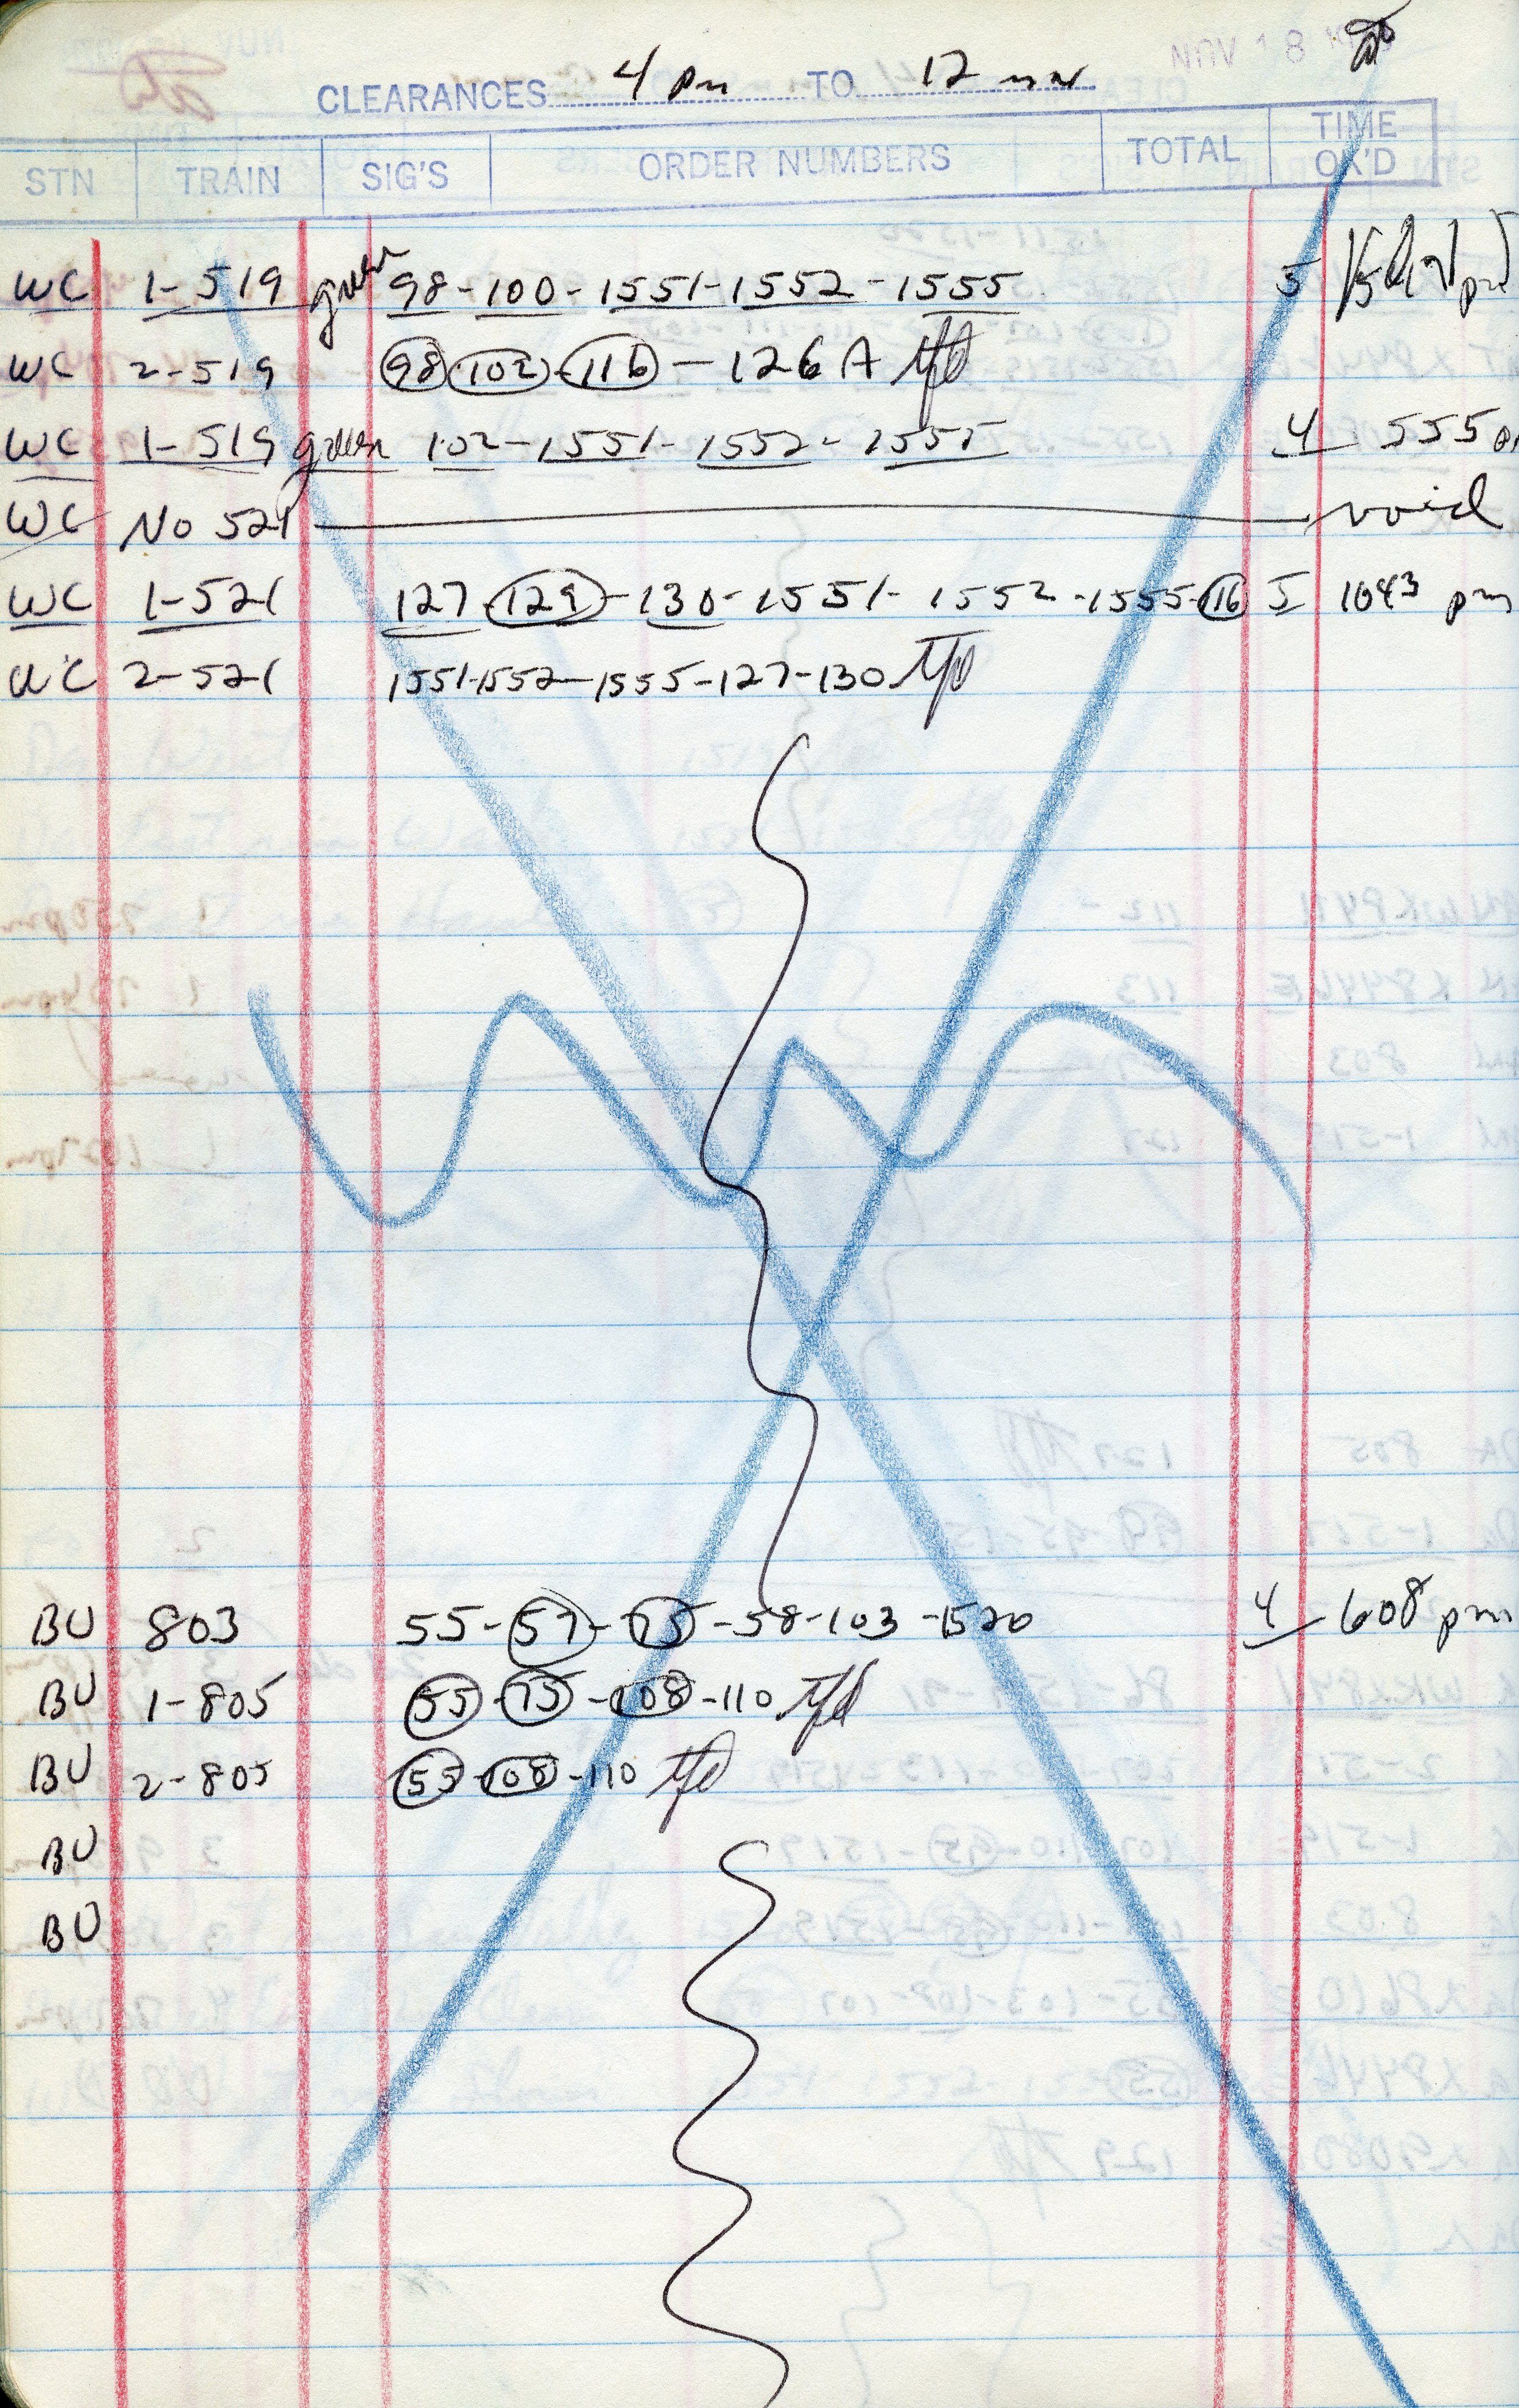 NOV 18
CLEARANCES 4 pm TO 12 mn
STN TRAIN SIG'S ORDER NUMBERS TOTAL TIME OK'D
WC 1-519 green 98-100-1551-1552-1555 5 pm
WC 2-519 98 102 116 - 126 A
WC 1-519 green 102-1551-1552-1555 4 555
WC No 521 void
WC 1-521 127 129-130-1551-1552-1555-116 5 1043 pm
WC 2-521 1551-1552-1555-127-130
BU 803 55-57-75-58-103-1520 4 608 pm
BU 1-805 55-75-108-110
BU 2-805 55-108-110
BU
BU